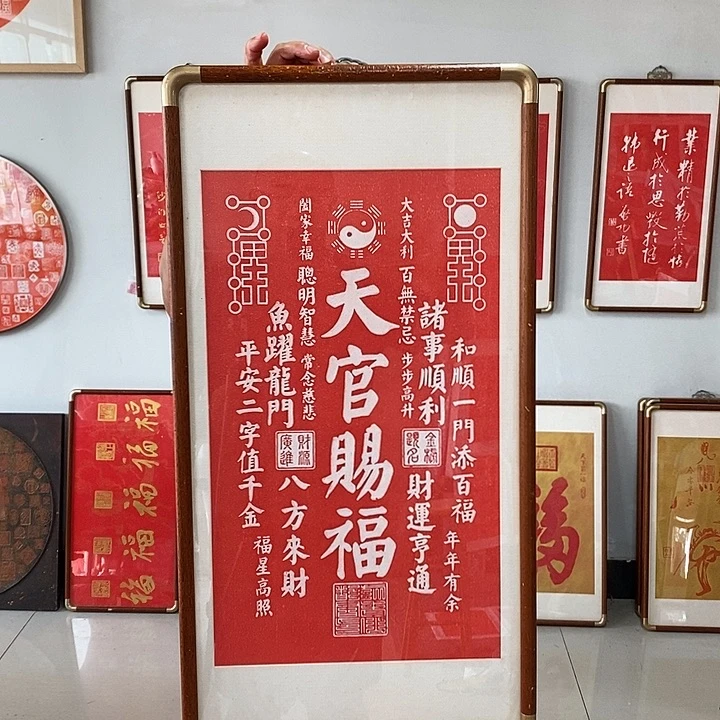 和順一門添百福
年年有余
諸事順利
金榜題名
財運亨通
大吉大利
百無禁忌
步步高升
天官賜福
闔家幸福
聰明智慧
常念慈悲
魚躍龍門
財源廣進
八方來財
平安二字值千金
福星高照
業精於勤荒於嬉
行成於思毀於随
福